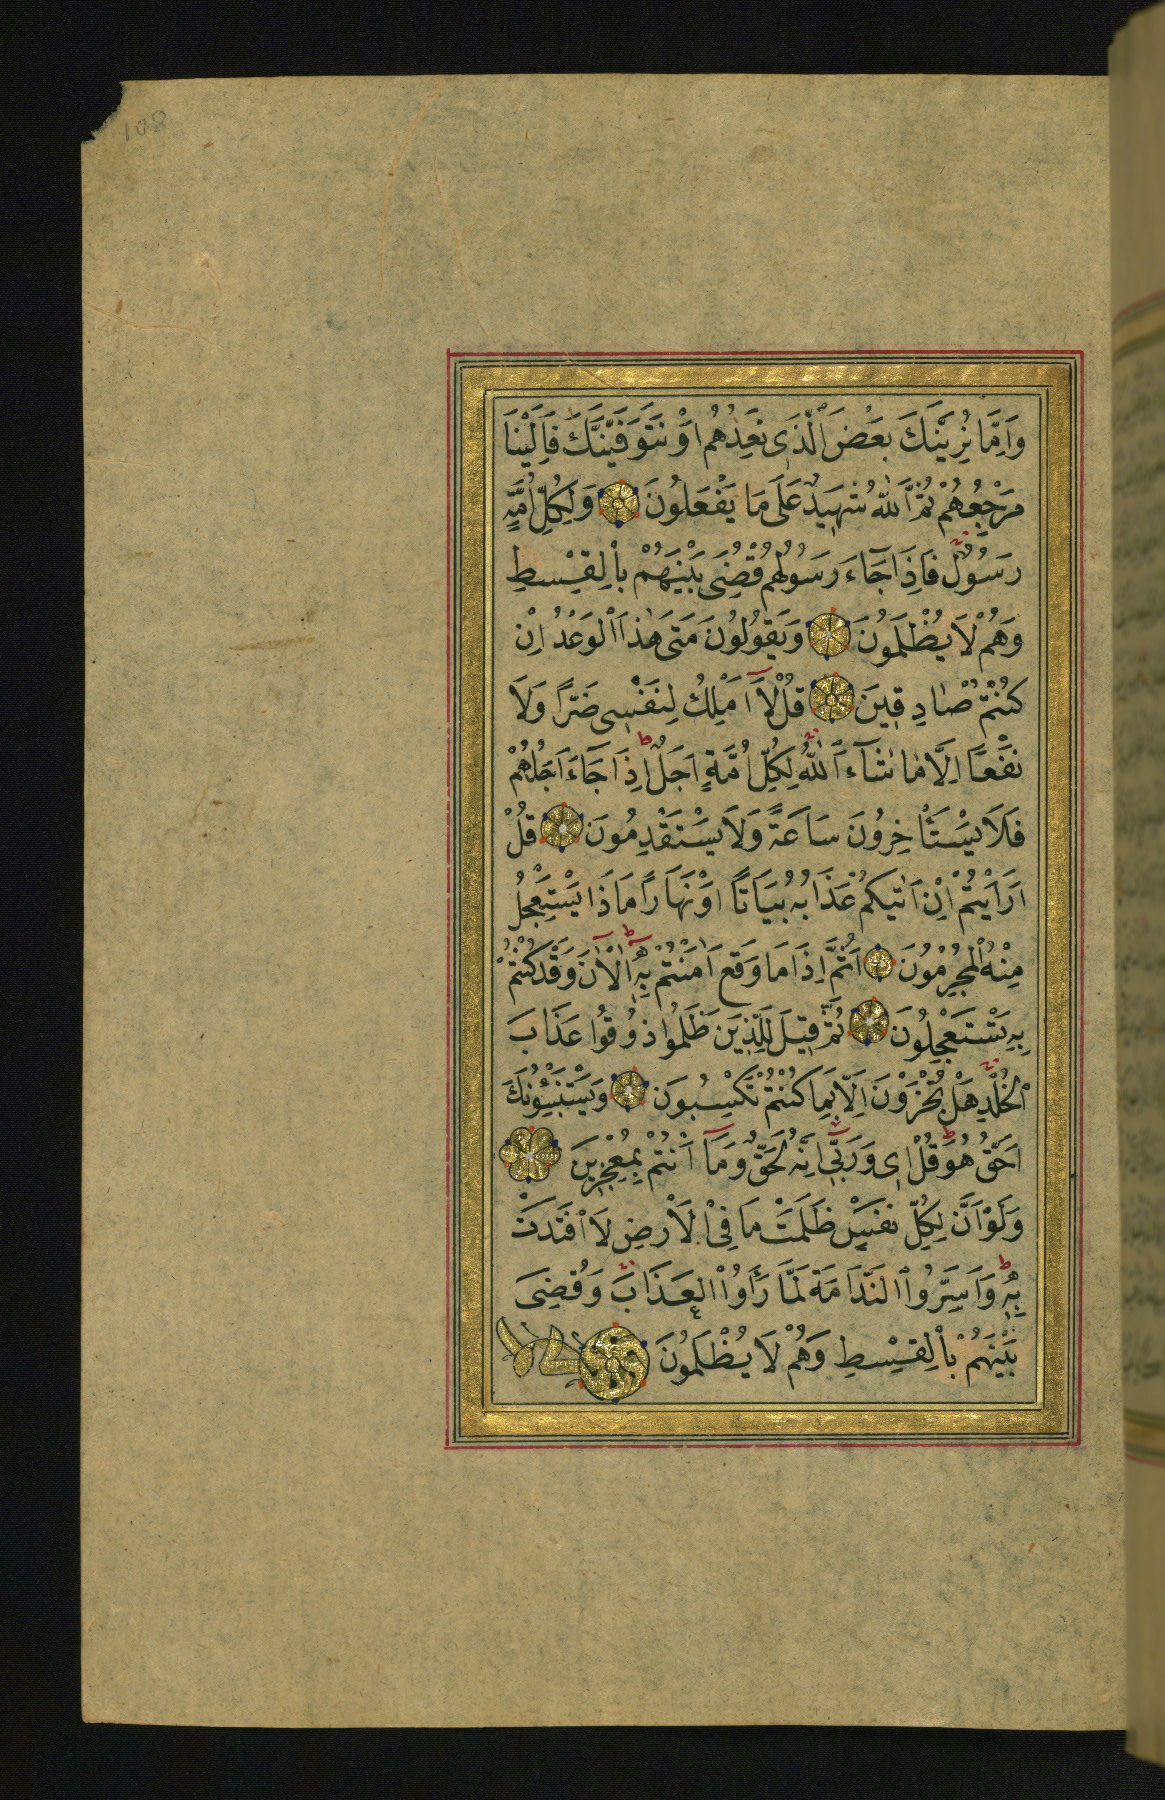 108
وَاِمَّا نُرِيَنَّكَ بَعْضَ الَّذ۪ى نَعِدُهُمْ اَوْ نَتَوَفَّيَنَّكَ فَاِلَيْنَا
مَرْجِعُهُمْ ثُمَّ اللّٰهُ شَه۪يدٌ عَلٰى مَا يَفْعَلُونَ وَلِكُلِّ اُمَّةٍ
رَسُولٌ فَاِذَا جَٓاءَ رَسُولُهُمْ قُضِىَ بَيْنَهُمْ بِالْقِسْطِ
وَهُمْ لَا يُظْلَمُونَ وَيَقُولُونَ مَتٰى هٰذَا الْوَعْدُ اِنْ
كُنْتُمْ صَادِق۪ينَ قُلْ لَٓا اَمْلِكُ لِنَفْس۪ى ضَرًّا وَلَا
نَفْعًا اِلَّا مَا شَٓاءَ اللّٰهُ لِكُلِّ اُمَّةٍ اَجَلٌ اِذَا جَٓاءَ اَجَلُهُمْ
فَلَا يَسْتَاْخِرُونَ سَاعَةً وَلَا يَسْتَقْدِمُونَ قُلْ
اَرَاَيْتُمْ اِنْ اَتٰيكُمْ عَذَابُهُ بَيَاتًا اَوْ نَهَارًا مَاذَا يَسْتَعْجِلُ
مِنْهُ الْمُجْرِمُونَ اَثُمَّ اِذَا مَا وَقَعَ اٰمَنْتُمْ بِه۪ اٰلْاٰنَ وَقَدْ كُنْتُمْ
بِه۪ تَسْتَعْجِلُونَ ثُمَّ ق۪يلَ لِلَّذ۪ينَ ظَلَمُوا ذُوقُوا عَذَابَ
الْخُلْدِ هَلْ تُجْزَوْنَ اِلَّا بِمَا كُنْتُمْ تَكْسِبُونَ وَيَسْتَنْبِؤُنَكَ
اَحَقٌّ هُوَ قُلْ اى وَرَبّ۪ى اِنَّهُ لَحَقٌّ وَمَٓا اَنْتُمْ بِمُعْجِز۪ينَ
وَلَوْ اَنَّ لِكُلِّ نَفْسٍ ظَلَمَتْ مَا فِى الْاَرْضِ لَافْتَدَتْ
بِه۪ وَاَسَرُّوا النَّدَامَةَ لَمَّا رَاَوُا الْعَذَابَ وَقُضِىَ
بَيْنَهُمْ بِالْقِسْطِ وَهُمْ لَا يُظْلَمُونَ